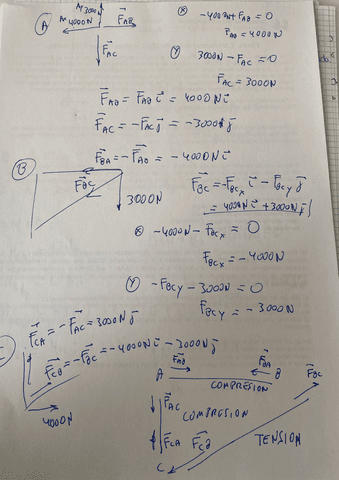 A
3000N
4000N
F_AB
F_AC
X -4000N + F_AB = 0
F_AB = 4000N
Y 3000N - F_AC = 0
F_AC = 3000N
F_AB = F_AB i = 4000N i
F_AC = -F_AC j = -3000N j
F_BA = -F_AB = -4000N i
B
F_BC
3000N
F_BC = -F_BCx i - F_BCy j
= 4000N i + 3000N j
X -4000N - F_BCx = 0
F_BCx = -4000N
Y -F_BCy - 3000N = 0
F_BCy = -3000N
F_CA = -F_AC = 3000N j
F_CB = -F_BC = -4000N i - 3000N j
4000N
A F_AB F_BA B
COMPRESION
F_BC
F_AC
COMPRESION
F_CA F_CB
TENSION
C